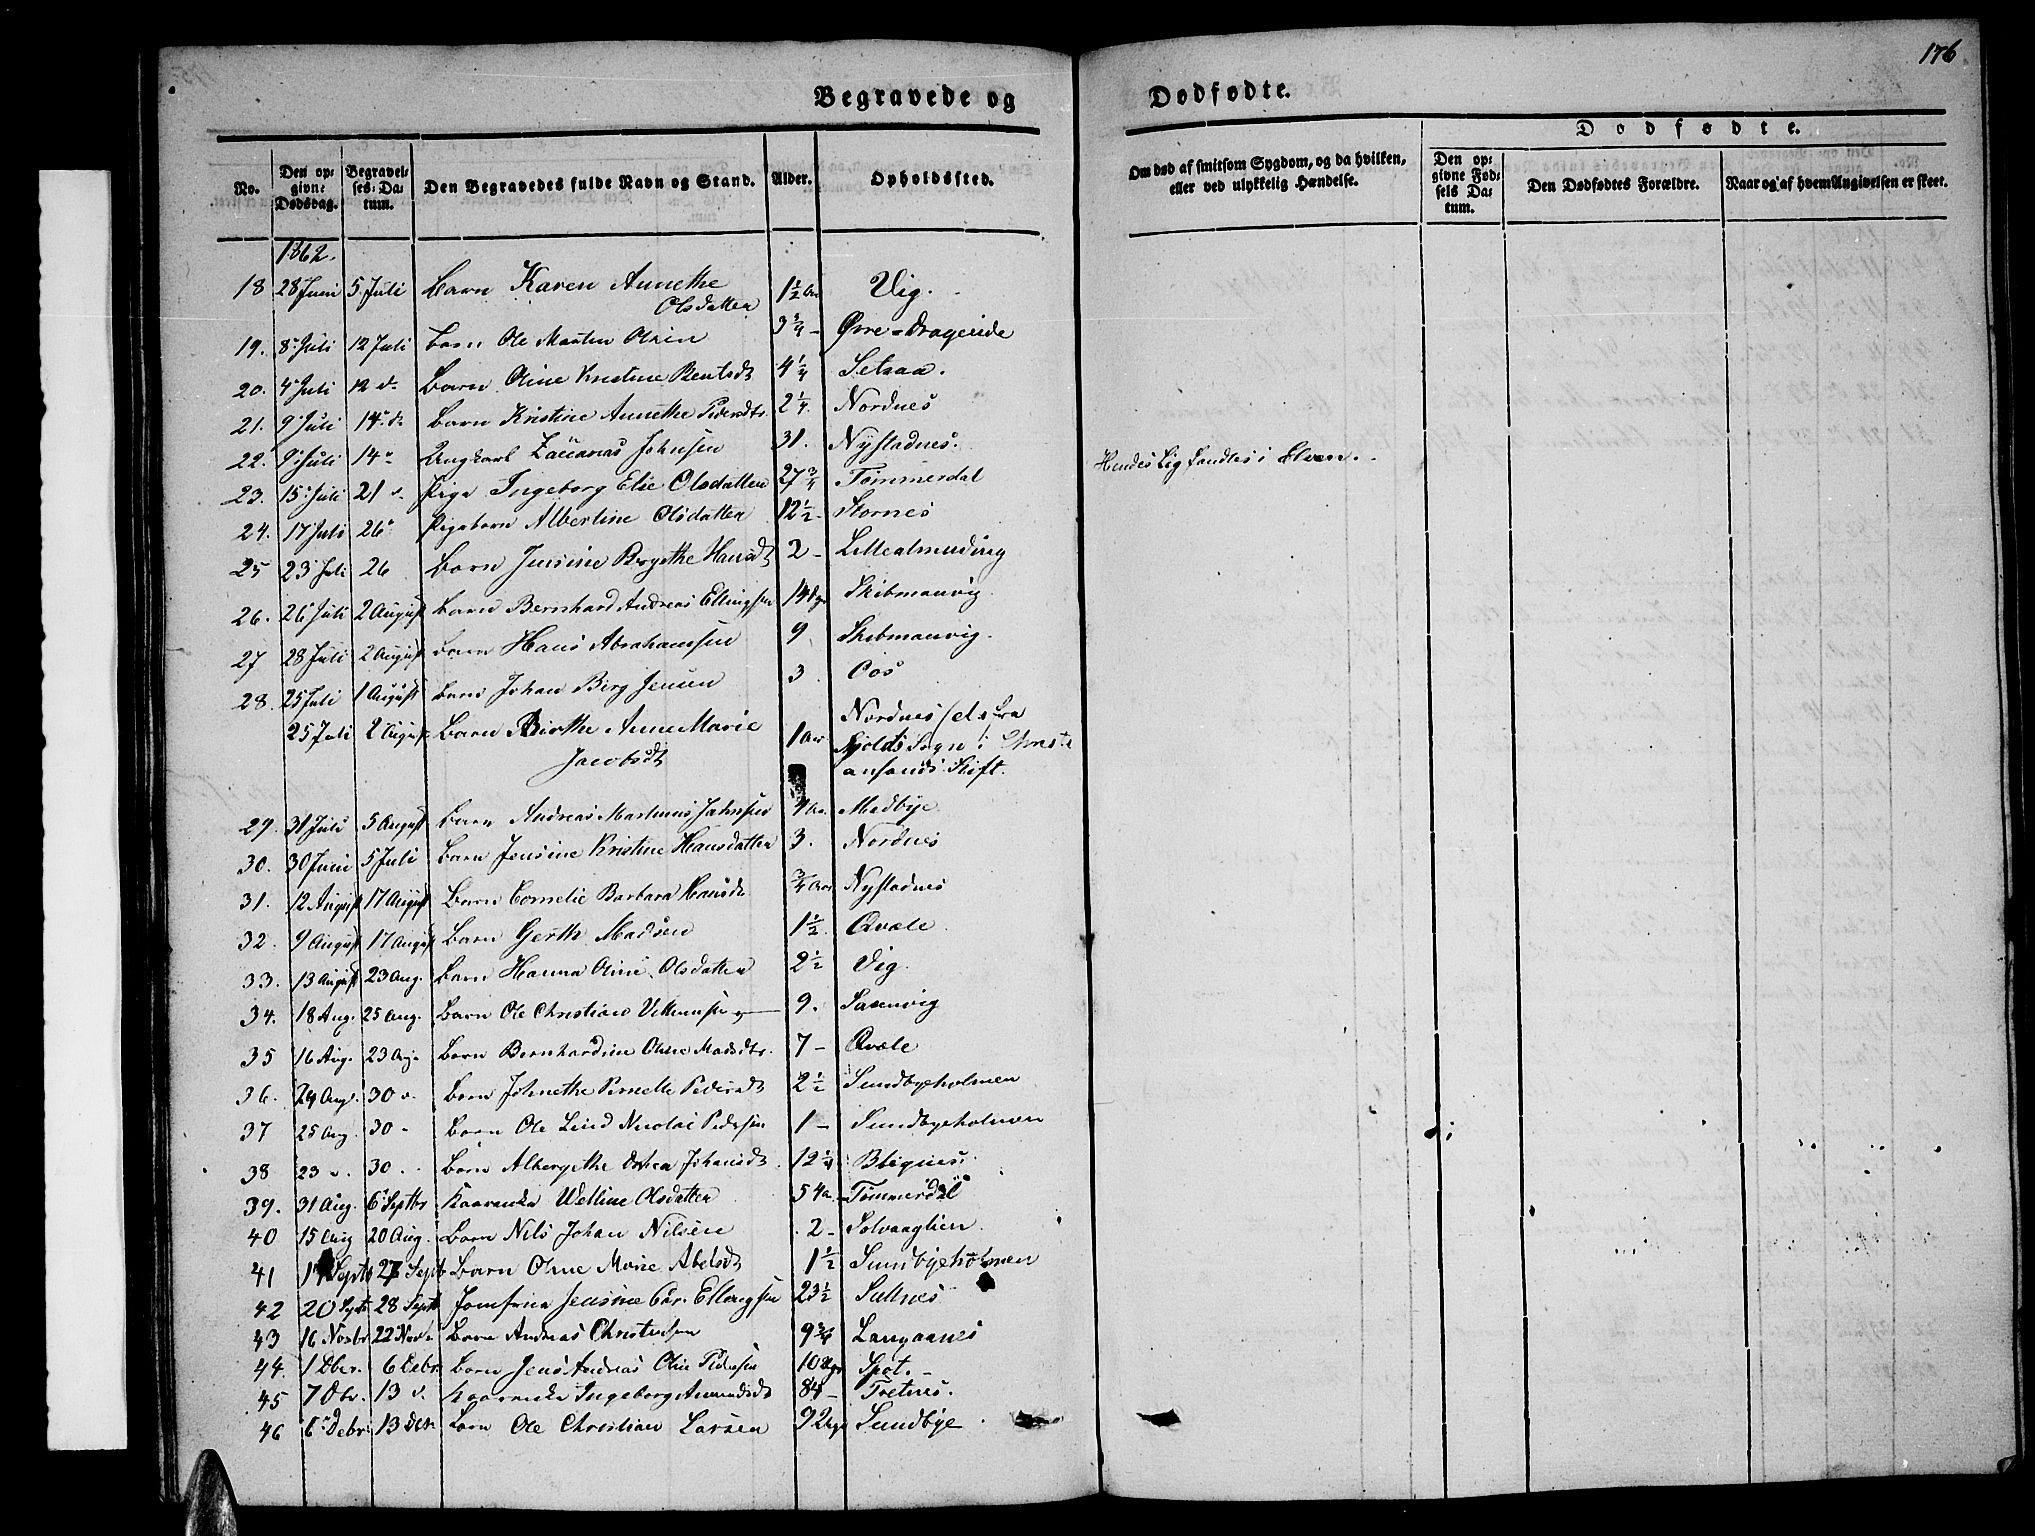 176
Begravede og Dødfødte.
No. Den opgivne Dødsdag. Begravelses-Datum. Den Begravedes fulde Navn og Stand. Alder. Opholdssted. Om død af smitsom Sygdom, og da hvilken, eller ved ulykkelig Hændelse. Dødfødte. Den opgivne Fødsels Datum. Den Dødfødtes Forældre. Naar og af hvem Angivelsen er skeet.
1862.
18 28 Juni 5 Juli Barn Karen Annethe Olsdatter 1 1/2 Aar Vig.
19. 8 Juli 12 Juli Barn Ole Morten Olsen 3 3/4 - Øvre-Drageide
20. 4 Juli 12 d. Barn Oline Kristine Bentsdt 4 1/4 Setsaa.
21. 9 Juli 14 d. Barn Kristine Annethe Pedersdtr. 2 1/4 Nordnes
22. 9 Juli 14 " Ungkarl Zacarias Johnsen 31. Nystadnes.
23. 15 Juli 21 " Pige Ingeborg Else Olsdatter 27 3/4 Tømmerdal Hendes Lig fandtes i Elven.
24. 17 Juli 26 " Pigebarn Albertine Olsdatter 12 1/2 Stornes
25 23 Juli 26 Barn Jensine Bergethe Hansdt 2 - Lillealmuding
26. 26 Juli 2 August Barn Bernhard Andreas Ellingsen 14 dge Skibmanvig
27 28 Juli 2 August Barn Hans Abrahamsen 9 Skibmanvig.
28. 25 Juli 1 August Barn Johan Berg Jensen 3. Oos
25 Juli 2 August Barn Birthe Anne Marie Jacobsdt 1 Aar Nordnes / els fra Skjolds Sogn i Christiansands Stift.
29. 31 Juli 5 August Barn Andreas Martinus Jahnsen 4 Aar. Medbye
30. 30 Juni 5 Juli Barn Jensine Kristine Hansdatter 3. Nordnes
31. 12 August 17 August Barn Cornelie Barbara Hansdt 3/4 Aar Nystadnes
32. 9 August 17 August Barn Gerth Madsen 1 1/2 Qvæle
33. 13 August 23 Aug. Barn Hanna Oline Olsdatter 2 1/2 Vig.
34. 18 Aug. 25 Aug. Barn Ole Christian Villumsen 9. Saxenvig
35 16 Aug. 23 Aug. Barn Bernhardine Oline Madsdtr. 7 - Qvæle
36. 24 Aug. 30 " Barn Johnethe Pernelle Pedersdt 2 1/2 Sundbyeholmen
37 25 Aug 30 - Barn Ole Lind Nicolai Pedersen 1 - Sundbyeholmen
38 23 " 30 Barn Albergethe Johansdt. 12 1/4 Bleignes.
39. 31 Aug. 6 Septbr Kaarenke Welline Olsdatter 54 a. Tømmerdal
40 15 Aug 20 Aug. Barn Nils Johan Nilsen 2 - Solvaaglien
41 Septb 27 Septb Barn Oline Marie Abelsdt 1 1/2 Sundbyeholmen
42 20 Septb 28 Septb Jomfru Jensine Ellingsen 23 1/2 Saltnes
43 16 Novbr 22 Novbr Barn Andreas Christensen 9 3/4 Langaanes
44. 1 Dbr. 6 Debr. Barn Jens Andreas Olai Pedersen 10 dge Spot.
45 7 Dbr. 13 " Kaarenke Ingeborg Amundsdt 84 - Tretnes.
46 6 Debr 13 Debr. Barn Ole Christian Larsen 9 Sundbye